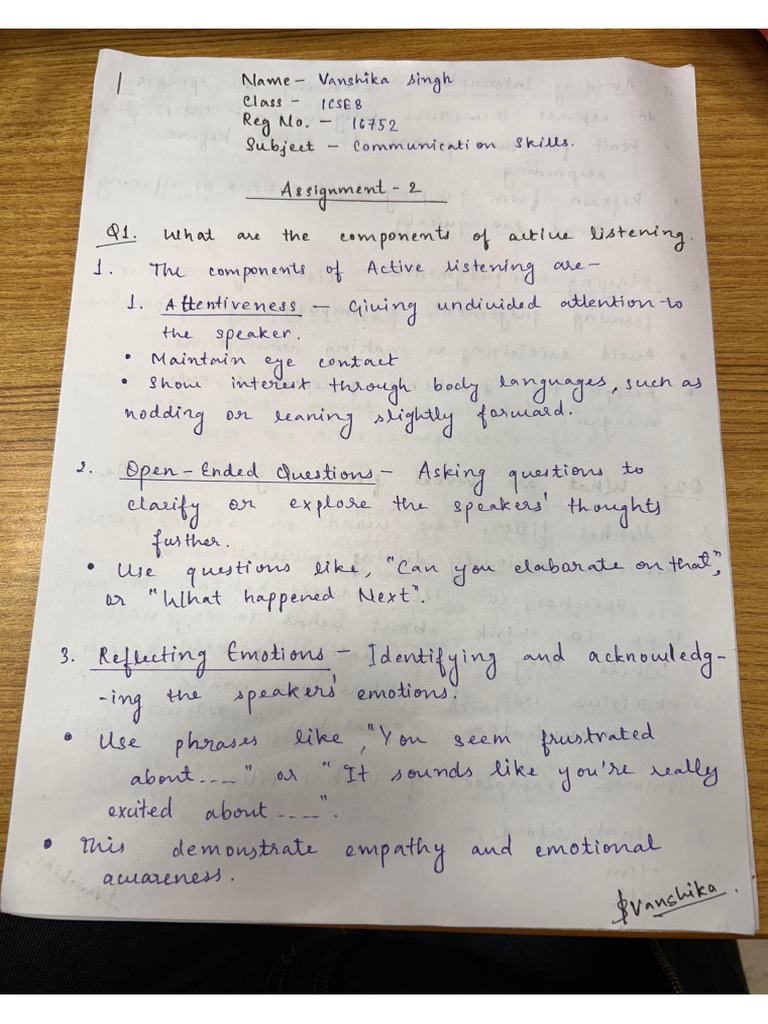 1
Name - Vanshika Singh
Class - ICSE8
Reg No. - 16752
Subject - Communication Skills.
Assignment - 2
Q1. What are the components of active listening.
1. The components of Active listening are-
1. Attentiveness - Giving undivided attention to
the speaker.
• Maintain eye contact
• Show interest through body languages, such as
nodding or leaning slightly forward.
2. Open-Ended Questions - Asking questions to
clarify or explore the speakers' thoughts
further.
• Use questions like, "Can you elabarate on that",
or "What happened Next".
3. Reflecting Emotions - Identifying and acknowledg-
-ing the speakers' emotions.
• Use phrases like, "You seem frustrated
about...." or "It sounds like you're really
excited about....".
• This demonstrate empathy and emotional
awareness.
Vanshika.